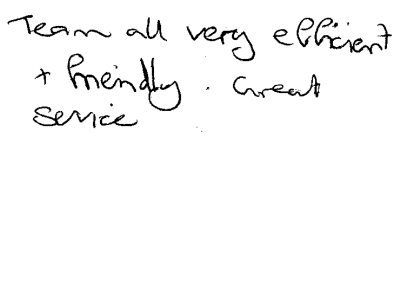 Team all very efficient
+ friendly. Great
service